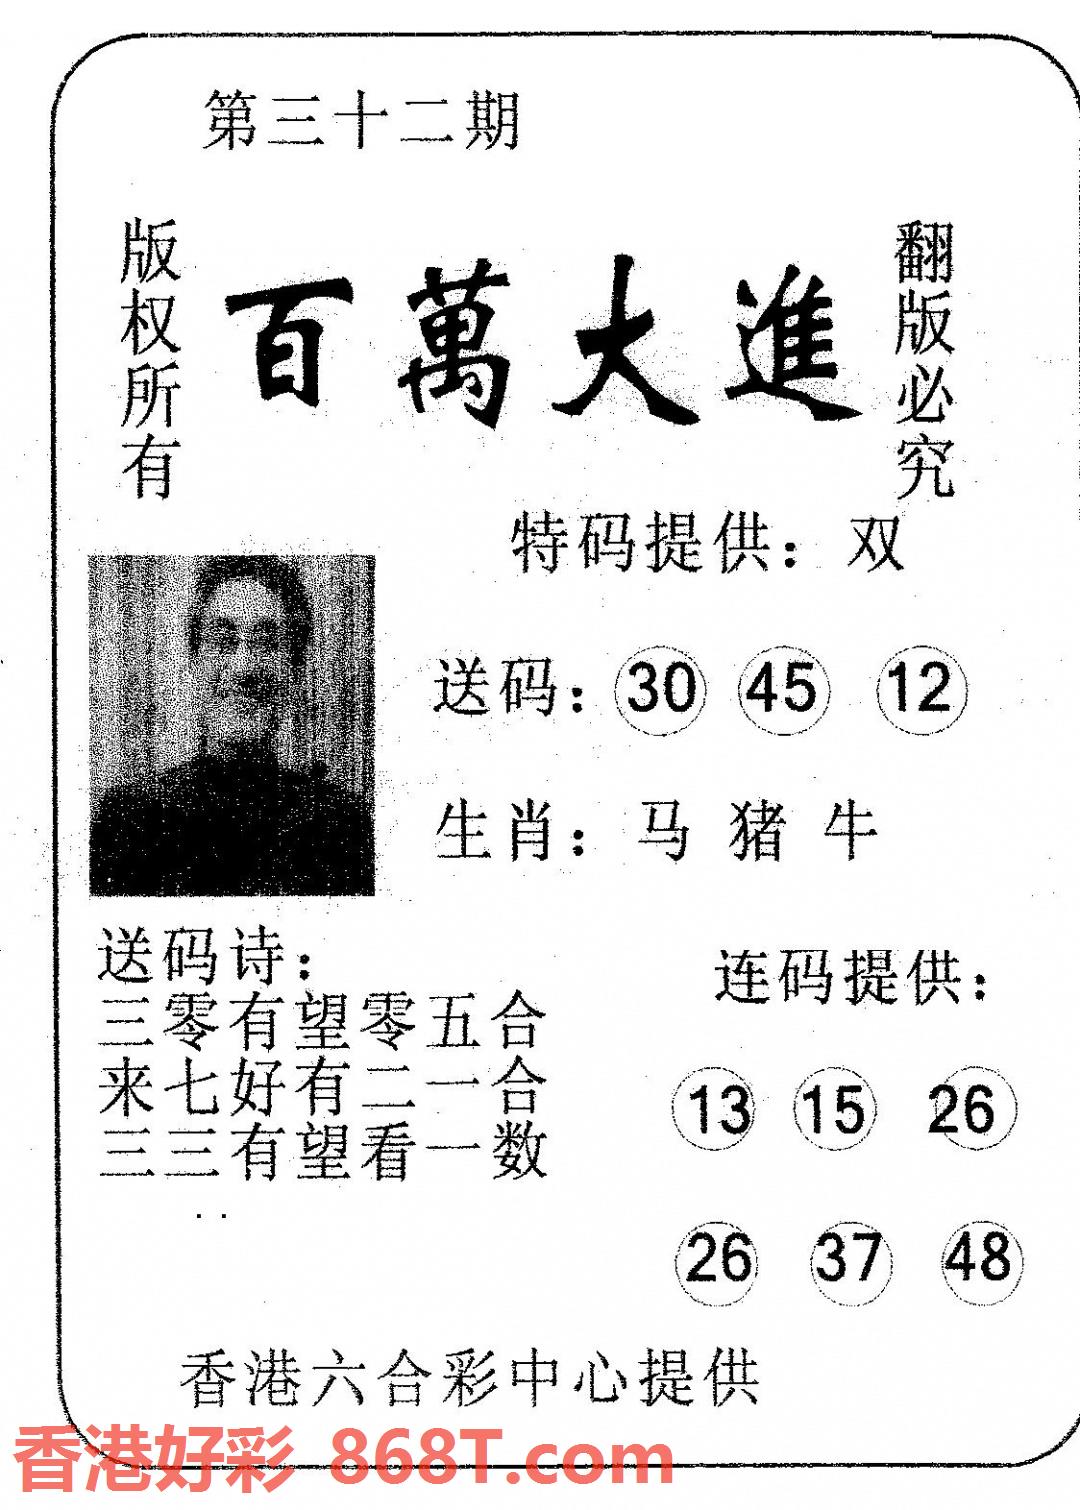 第三十二期
版权所有
百萬大進
翻版必究
特码提供：双
送码：30 45 12
生肖：马 猪 牛
送码诗：
三零有望零五合
来七好有二一合
三三有望看一数
连码提供：
13 15 26
26 37 48
香港六合彩中心提供
香港好彩 868T.com